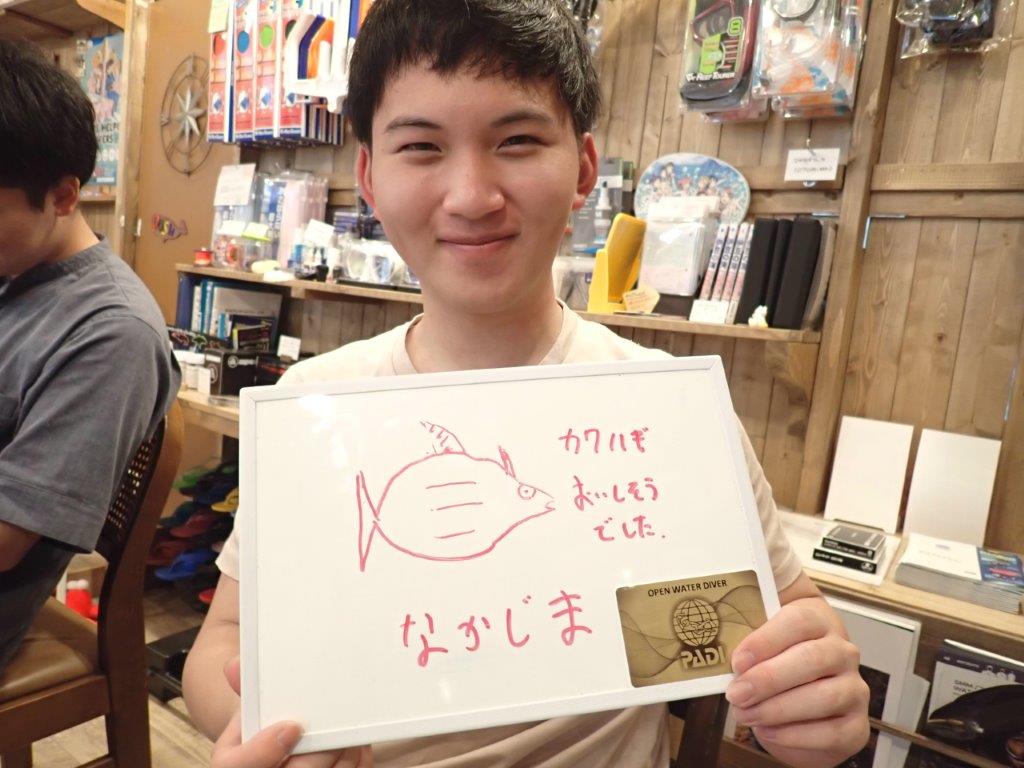 カワハギ
おいしそう
でした.
なかじま
OPEN WATER DIVER
PADI